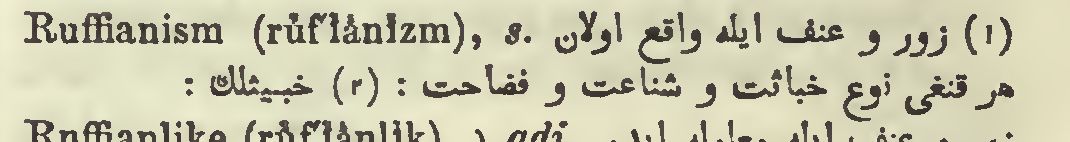 Ruffianism (růf'ĭånĭzm), s. (١) زور و عنف ايله واقع اولان
هر قنغی نوع خباثت و شناعت و فضاحت : (٢) خبيثلك :
Ruffianlike (růf'ĭånlīk), adj.